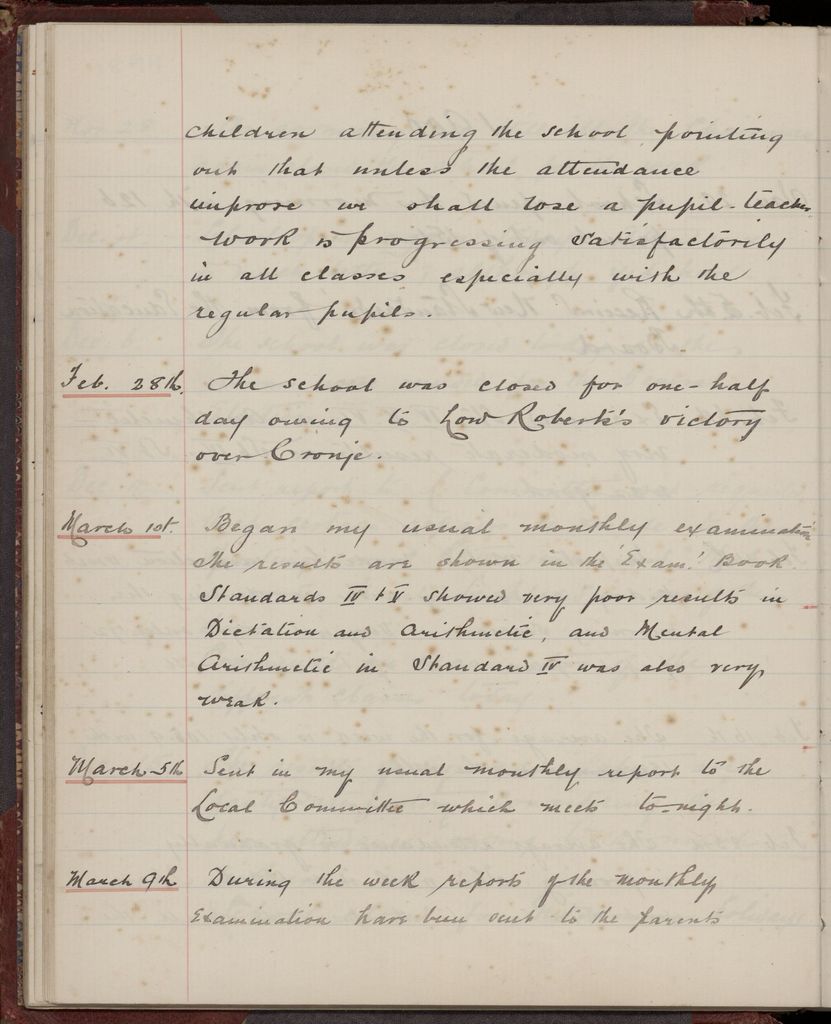 children attending the school pointing
out that unless the attendance
improve we shall lose a pupil-teacher.
Work is progressing satisfactorily
in all classes especially with the
regular pupils.
Feb. 28th. The school was closed for one-half
day owing to Lord Robert's victory
over Cronje.
March 1st. Began my usual monthly examination
The results are shown in the 'Exam.' Book.
Standards IV & V showed very poor results in
Dictation and Arithmetic, and Mental
Arithmetic in Standard IV was also very
weak.
March 5th Sent in my usual monthly report to the
Local Committee which meets to-night.
March 9th During the week reports of the monthly
Examination have been sent to the parents